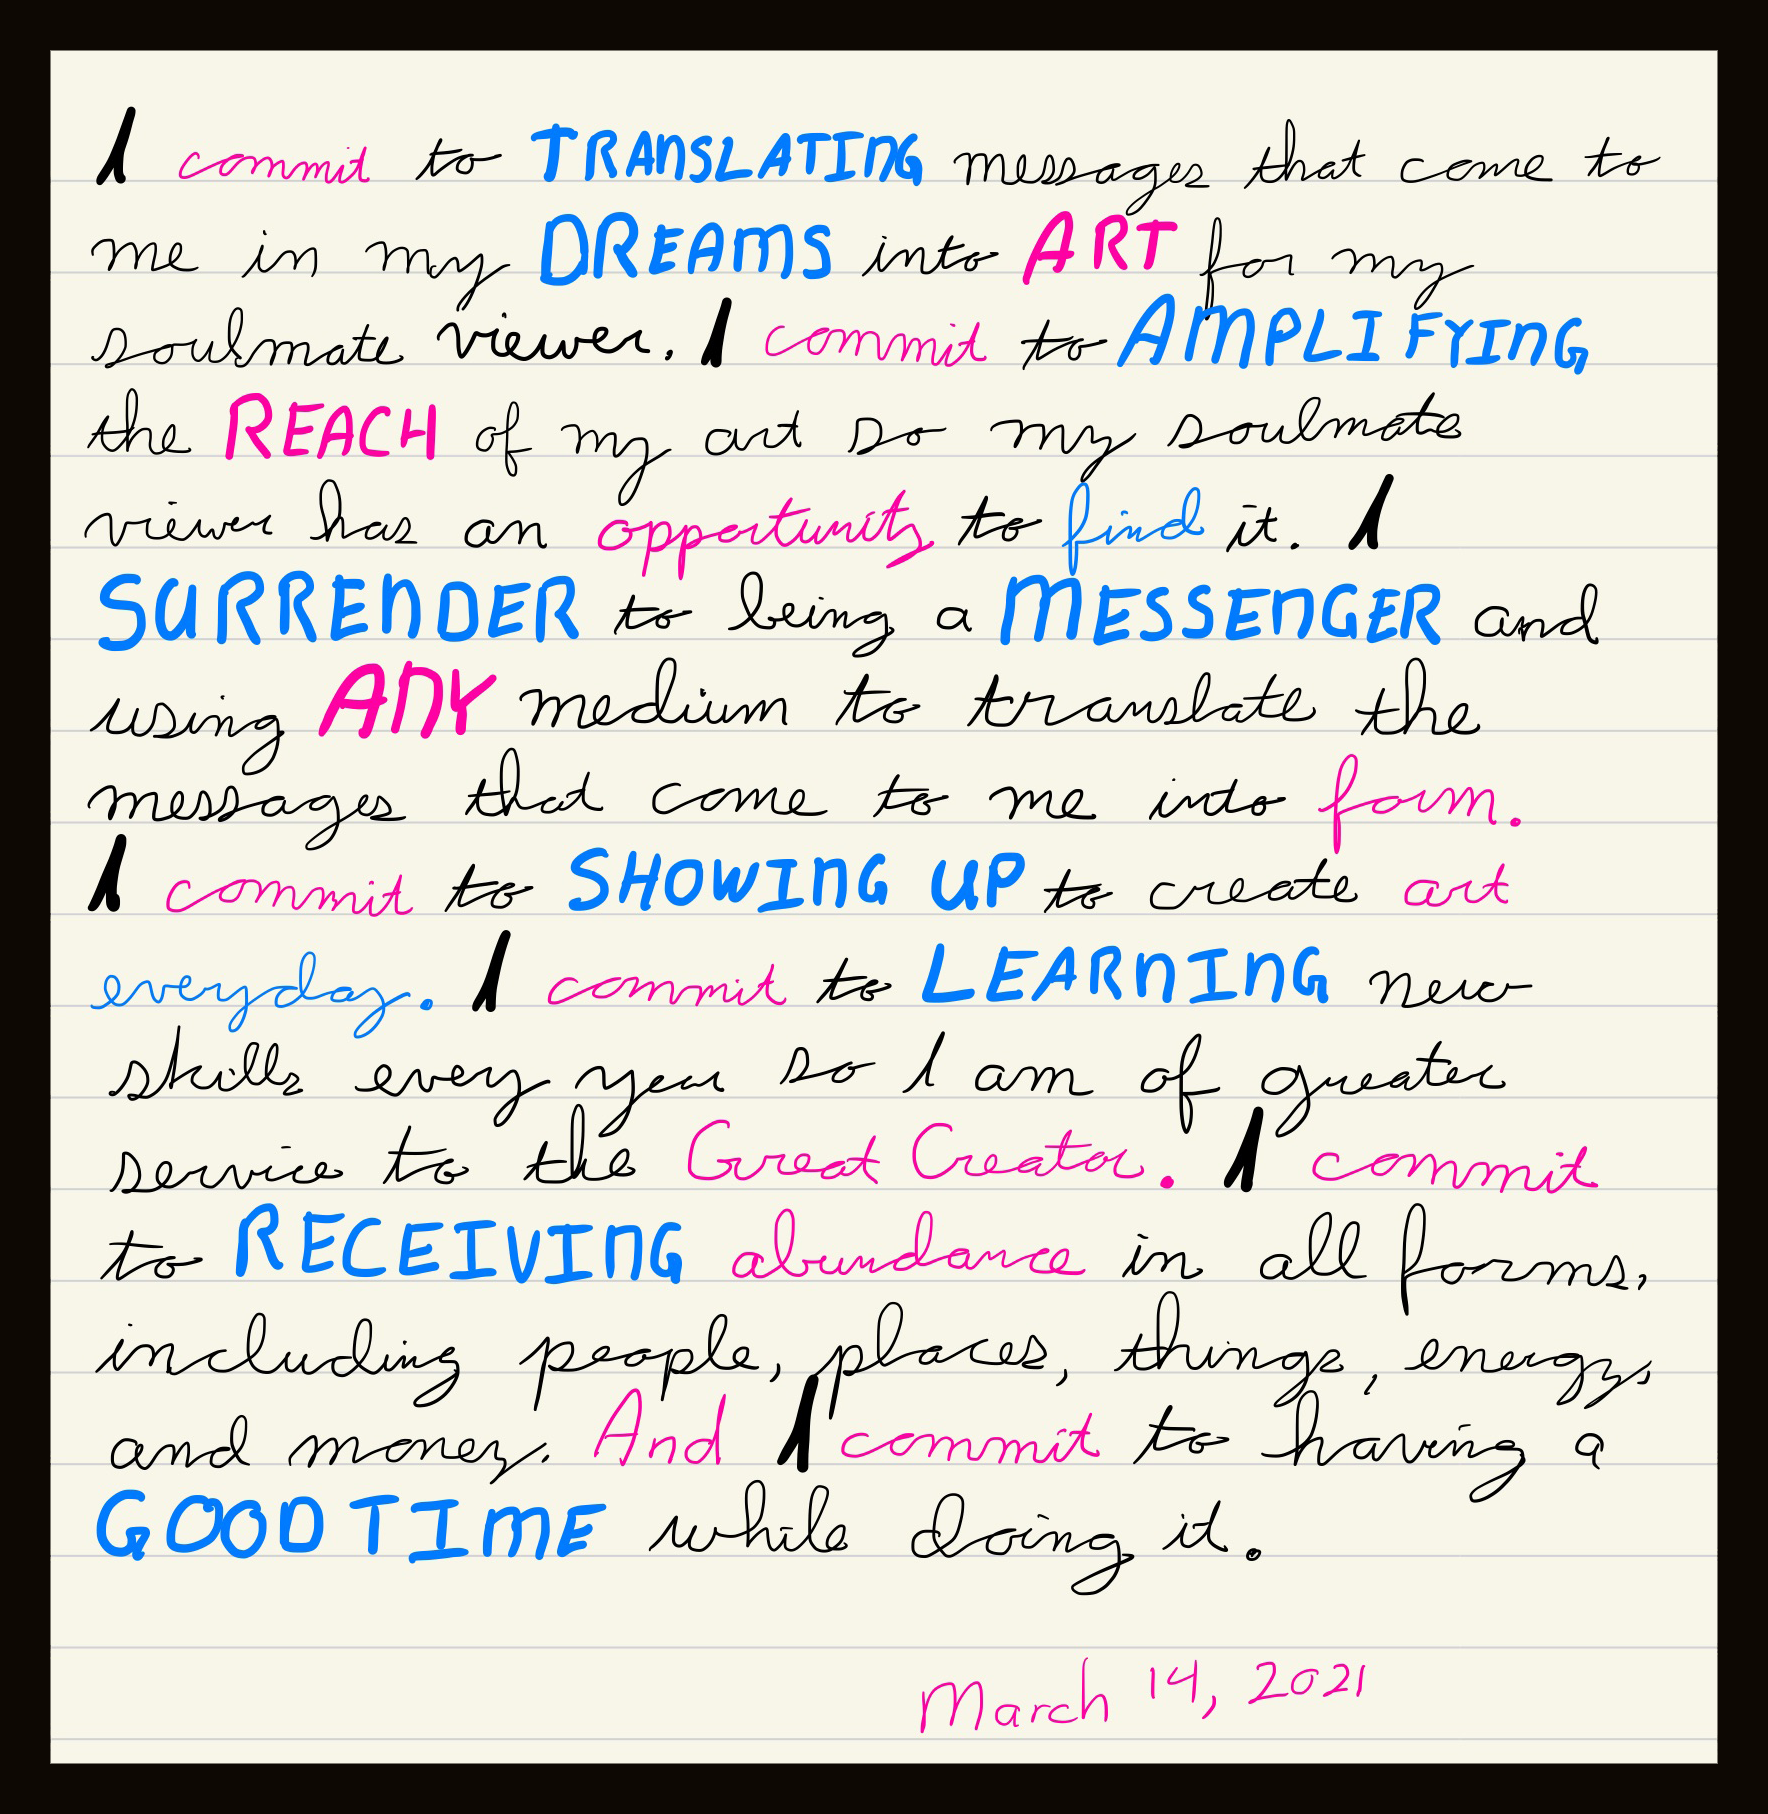 I commit to TRANSLATING messages that come to
me in my DREAMS into ART for my
soulmate viewer. I commit to AMPLIFYING
the REACH of my art so my soulmate
viewer has an opportunity to find it. I
SURRENDER to being a MESSENGER and
using ANY medium to translate the
messages that come to me into form.
I commit to SHOWING UP to create art
everyday. I commit to LEARNING new
skills every year so I am of greater
service to the Great Creator. I commit
to RECEIVING abundance in all forms,
including people, places, things, energy,
and money. And I commit to having a
GOOD TIME while doing it.
March 14, 2021